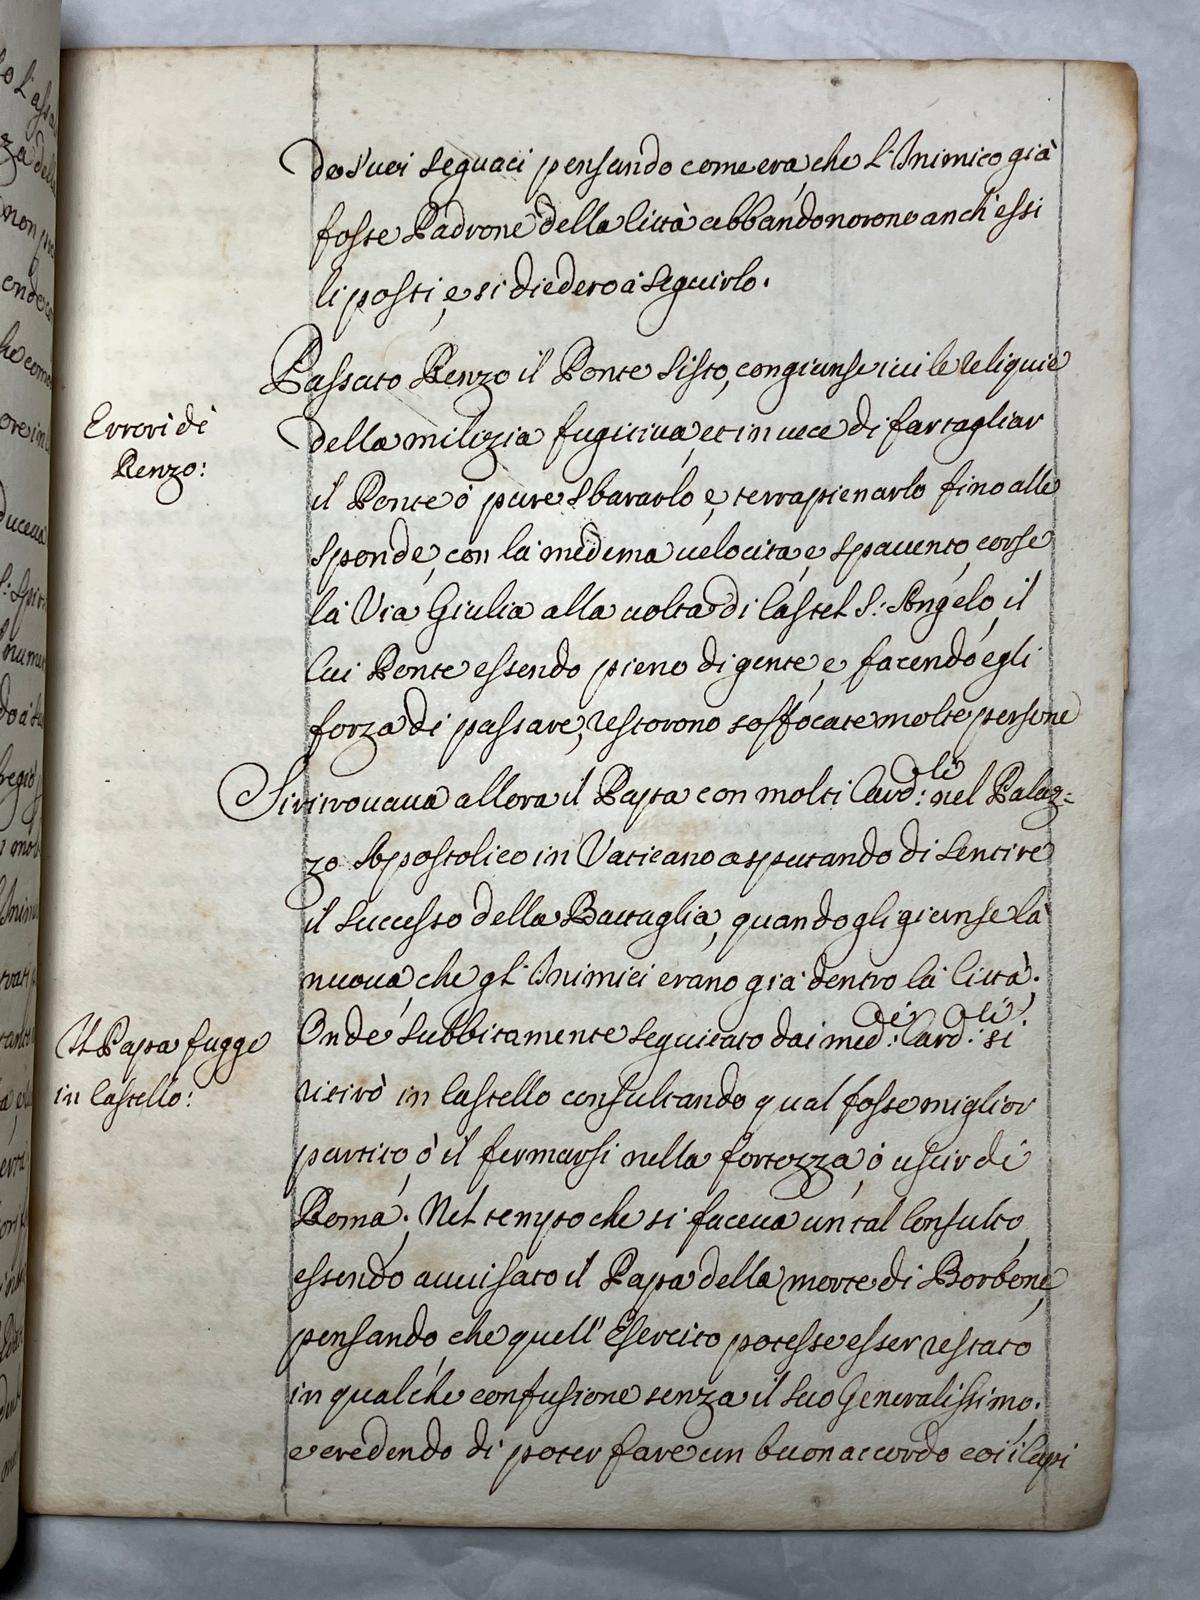 de suoi seguaci pensando come era, che l'Inimico già
fosse Padrone della Città abbandonorono anch'essi
li posti, e si diedero à seguirlo.
Passato Renzo il Ponte Sisto, congiunse ivi le reliquie
Errori di
Renzo:
della milizia fugitiva, et in vece di far tagliar
il Ponte ò pure sbararlo e, terrapienarlo fino alle
sponde, con la medema velocità, e spavento, corse
la Via Giulia alla volta di Castel S: Angelo, il
cui Ponte essendo pieno di gente, e facendo egli
forza di passare, restorono soffocate molte persone
Si ritrovava allora il Papa con molti Card:li nel Palaz=
zo Apostolico in Vaticano aspettando di sentire
il successo della Battaglia, quando gli giunse la
nuova, che gl'Inimici erano già dentro la Città.
Il Papa fugge
in Castello:
Onde subbitamente seguitato dai med:ei Card:li si
ritirò in Castello consultando qual fosse miglior
partito, ò il fermarsi nella fortezza, ò uscir di
Roma; Nel tempo che si faceva un tal Consulto,
essendo avvisato il Papa della morte di Borbone,
pensando, che quell'Esercito potesse esser restato
in qualche confusione senza il suo Generalissimo.
e credendo di poter fare un buon accordo coi i Capi